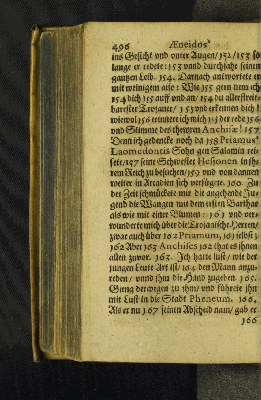 496 Æneidos
ins Gesicht vnd vnter Augen/152/153 so
lange er redete: 153 vnnd durchsahe seinen
gantzen Leib. 154. Darnach antwortete er
mit wenigem also: Wie 155 gern nem ich
154 dich 155 auff vnd an/154 du allerstreit-
barester Trojaner/ 153 vnd erkenne dich!
wievvol 156 erinnere ich mich 153 der rede 156
vnd Stimme des thewren Anchisæ! 157
Denn ich gedencke noch da 158 Priamus
Laomedontis Sohn gen Salamin rei-
sete/157 seine Schwester Hesionen in jh-
rem Reich zu besuchen/159 vnd von dannen
weiter in Arcadien sich verfügete. 160. Zu
der Zeit schmückete mir die angehende Ju-
gend die Wangen mit dem ersten Barthar
als wie mit einer Blumen: 161 vnd ver-
wunderte mich über die Trojanische Herren/
zwar auch über 162 Priamum, 161 selbst;
162 Aber 163 Anchises 162 that es jhnen
allen zuvor. 163. Ich hatte lust/ wie der
jungen Leute Art ist/ 164 den Mann anzu-
reden/ vnnd jhm die Hand zugeben 165.
Gieng derwegen zu jhm/ vnd führete jhn
mit Lust in die Stadt Pheneum. 166.
Als er nu 167 seinen Abscheid nam/ gab er
166